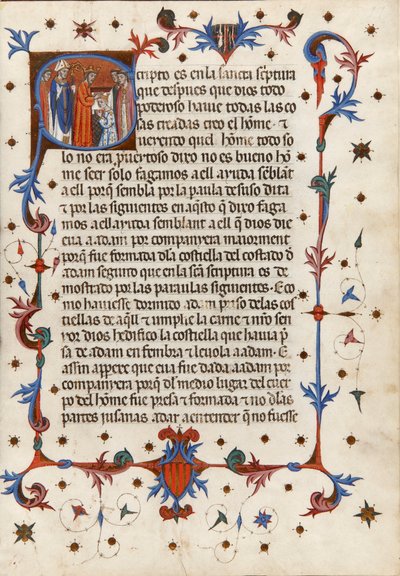 Scripto es en la sancta scriptura
que despues que dios todo
poderoso hauie todas las co
sas creadas creo el home ⁊
ueyendo quel home todo so
lo no era puertoso dixo no es bueno hõ
me seer solo fagamos a ell ayuda seblãt
a ell por q̃ sembla por la paula desuso dita
⁊ por las siguientes en aq̃sto q̃ dixo faga
mos a ell ayuda semblant a ell q̃ dios die
eua a adam por companyera maiorment
por q̃ fue formada dla costiella del costado d̃
adam seguito que en la sc̃a scriptura es de
mostrado por las paraulas siguientes. E co
mo hauiesse dormido adam priso de las cos
tiellas de aq̃ll ⁊ umplie la carne ⁊ nr̃o sen
yor dios hedifico la costiella que hauia p̃
sa de adam en fembra ⁊ leuola a adam. E
assin appere que eua fue dada a adam por
companyera por q̃ dl medio lugar del cuer
po del home fue presa ⁊ formada ⁊ no dlas
partes jusanas a dar a entender q̃ no fuesse